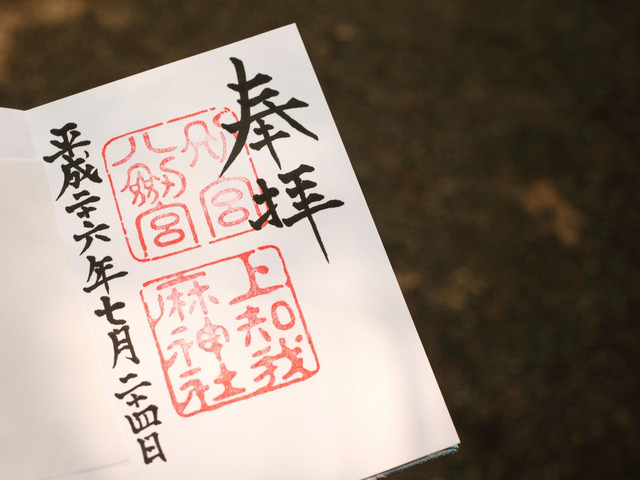 奉拝
別宮
八剱宮
上知我
麻神社
平成二十六年七月二十四日